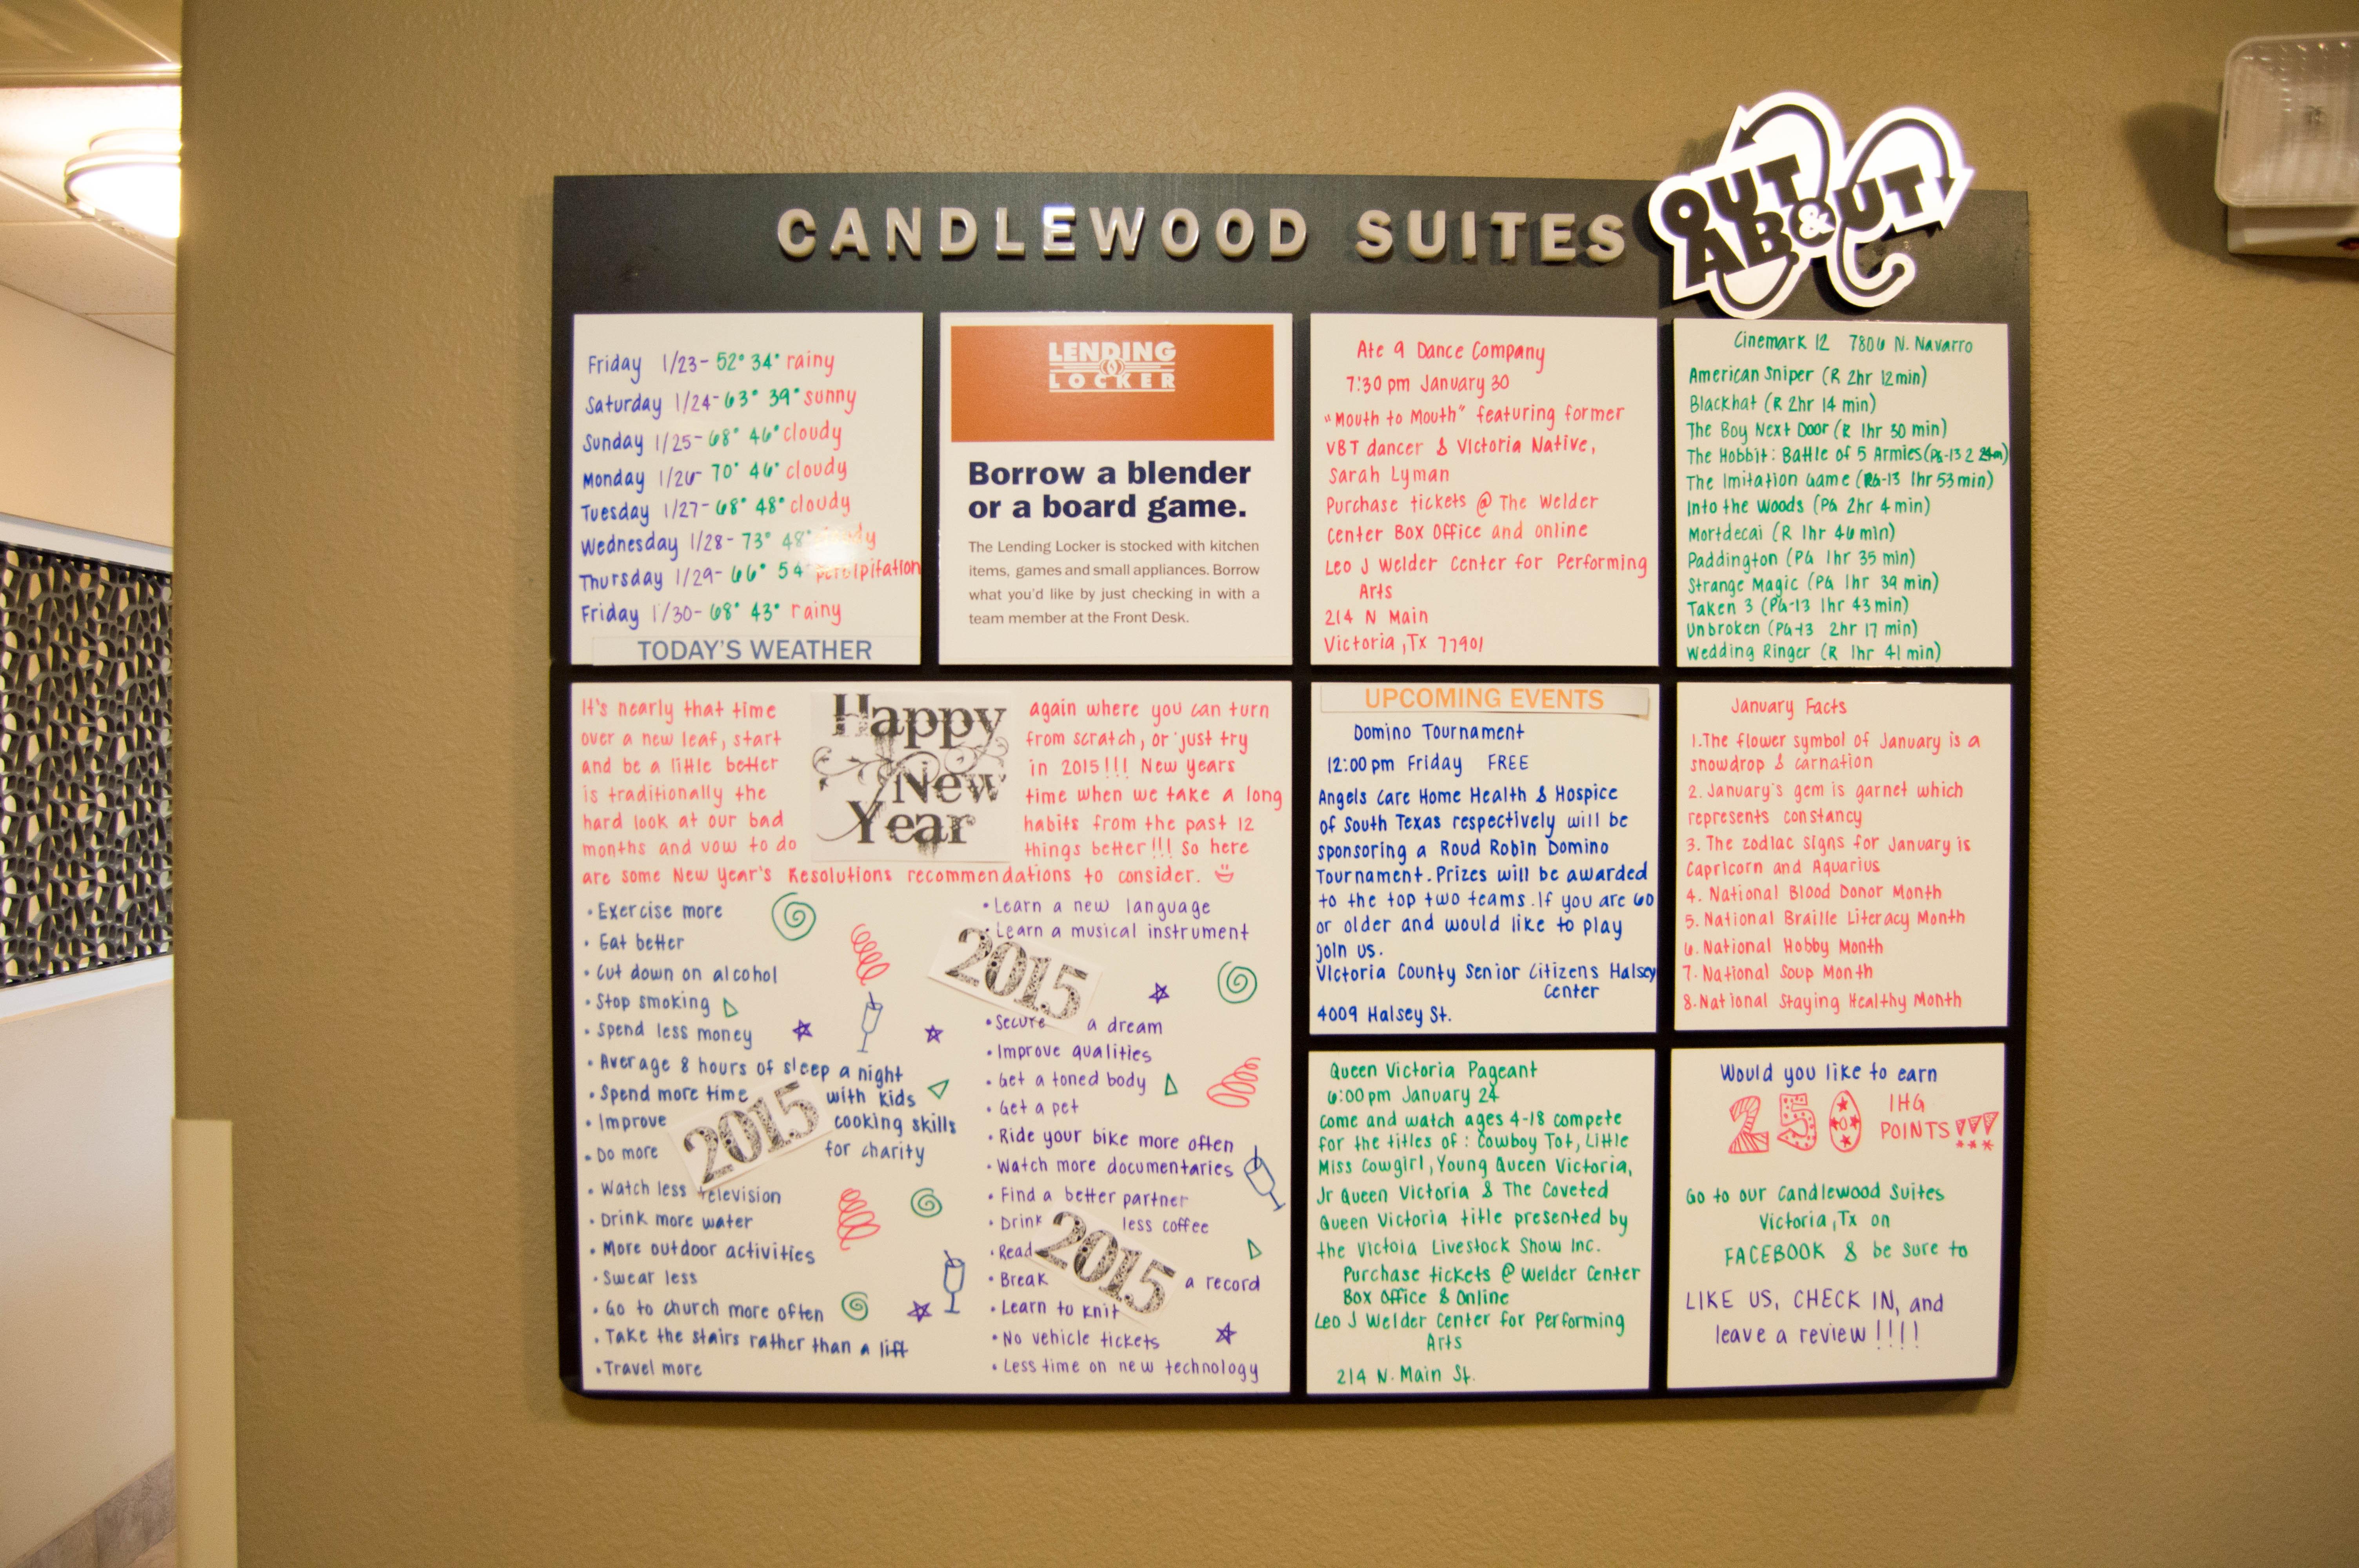 CANDLEWOOD SUITES
OUT & ABOUT
Friday 1/23- 52° 34° rainy
Saturday 1/24- 63° 39° sunny
Sunday 1/25- 68° 46° cloudy
Monday 1/26- 70° 46° cloudy
Tuesday 1/27- 68° 48° cloudy
Wednesday 1/28- 73° 48°
Thursday 1/29- 66° 54°
Friday 1/30- 68° 43° rainy
TODAY'S WEATHER
LENDING
LOCKER
Borrow a blender
or a board game.
The Lending Locker is stocked with kitchen
items, games and small appliances. Borrow
what you'd like by just checking in with a
team member at the Front Desk.
Ate 9 Dance Company
7:30 pm January 30
"Mouth to Mouth" featuring former
VBT dancer & Victoria Native,
Sarah Lyman
Purchase tickets @ The Welder
Center Box Office and online
Leo J Welder Center for Performing
Arts
214 N Main
Victoria, Tx 77901
Cinemark 12 7806 N. Navarro
American Sniper (R 2hr 12min)
Blackhat (R 2hr 14 min)
The Boy Next Door (R 1hr 30 min)
The Hobbit: Battle of 5 Armies (PG-13 2
The Imitation Game (PG-13 1hr 53 min)
Into the Woods (PG 2hr 4 min)
Mortdecai (R 1hr 46 min)
Paddington (PG 1hr 35 min)
Strange Magic (PG 1hr 39 min)
Taken 3 (PG-13 1hr 43 min)
Unbroken (PG-13 2hr 17 min)
Wedding Ringer (R 1hr 41 min)
It's nearly that time again where you can turn
over a new leaf, start from scratch, or just try
and be a little better in 2015!!! New years
is traditionally the time when we take a long
hard look at our bad habits from the past 12
months and vow to do things better!!! So here
are some New Year's Resolutions recommendations to consider.
Happy
New
Year
• Exercise more
• Eat better
• Cut down on alcohol
• Stop smoking
• Spend less money
• Average 8 hours of sleep a night
• Spend more time with kids
• Improve cooking skills
• Do more for charity
• Watch less television
• Drink more water
• More outdoor activities
• Swear less
• Go to church more often
• Take the stairs rather than a lift
• Travel more
2015
• Learn a new language
• Learn a musical instrument
2015
• Secure a dream
• Improve qualities
• Get a toned body
• Get a pet
• Ride your bike more often
• Watch more documentaries
• Find a better partner
• Drink less coffee
• Read
• Break a record
• Learn to knit
• No vehicle tickets
• Less time on new technology
2015
UPCOMING EVENTS
Domino Tournament
12:00 pm Friday FREE
Angels Care Home Health & Hospice
of South Texas respectively will be
sponsoring a Roud Robin Domino
Tournament. Prizes will be awarded
to the top two teams. If you are 60
or older and would like to play
join us.
Victoria County Senior Citizens Halsey
Center
4009 Halsey St.
January Facts
1. The flower symbol of January is a
snowdrop & carnation
2. January's gem is garnet which
represents constancy
3. The zodiac signs for January is
Capricorn and Aquarius
4. National Blood Donor Month
5. National Braille Literacy Month
6. National Hobby Month
7. National Soup Month
8. National Staying Healthy Month
Queen Victoria Pageant
6:00 pm January 24
Come and watch ages 4-18 compete
for the titles of: Cowboy Tot, Little
Miss Cowgirl, Young Queen Victoria,
Jr Queen Victoria & The Coveted
Queen Victoria title presented by
the Victoia Livestock Show Inc.
Purchase tickets @ Welder Center
Box Office & Online
Leo J Welder Center for Performing
Arts
214 N. Main St.
Would you like to earn
250 IHG
POINTS!!!
Go to our Candlewood Suites
Victoria, Tx on
FACEBOOK & be sure to
LIKE US, CHECK IN, and
leave a review!!!!